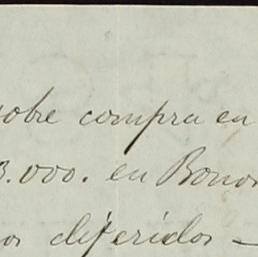 sobre compra en
3.000. en Bonos
os diferidos —